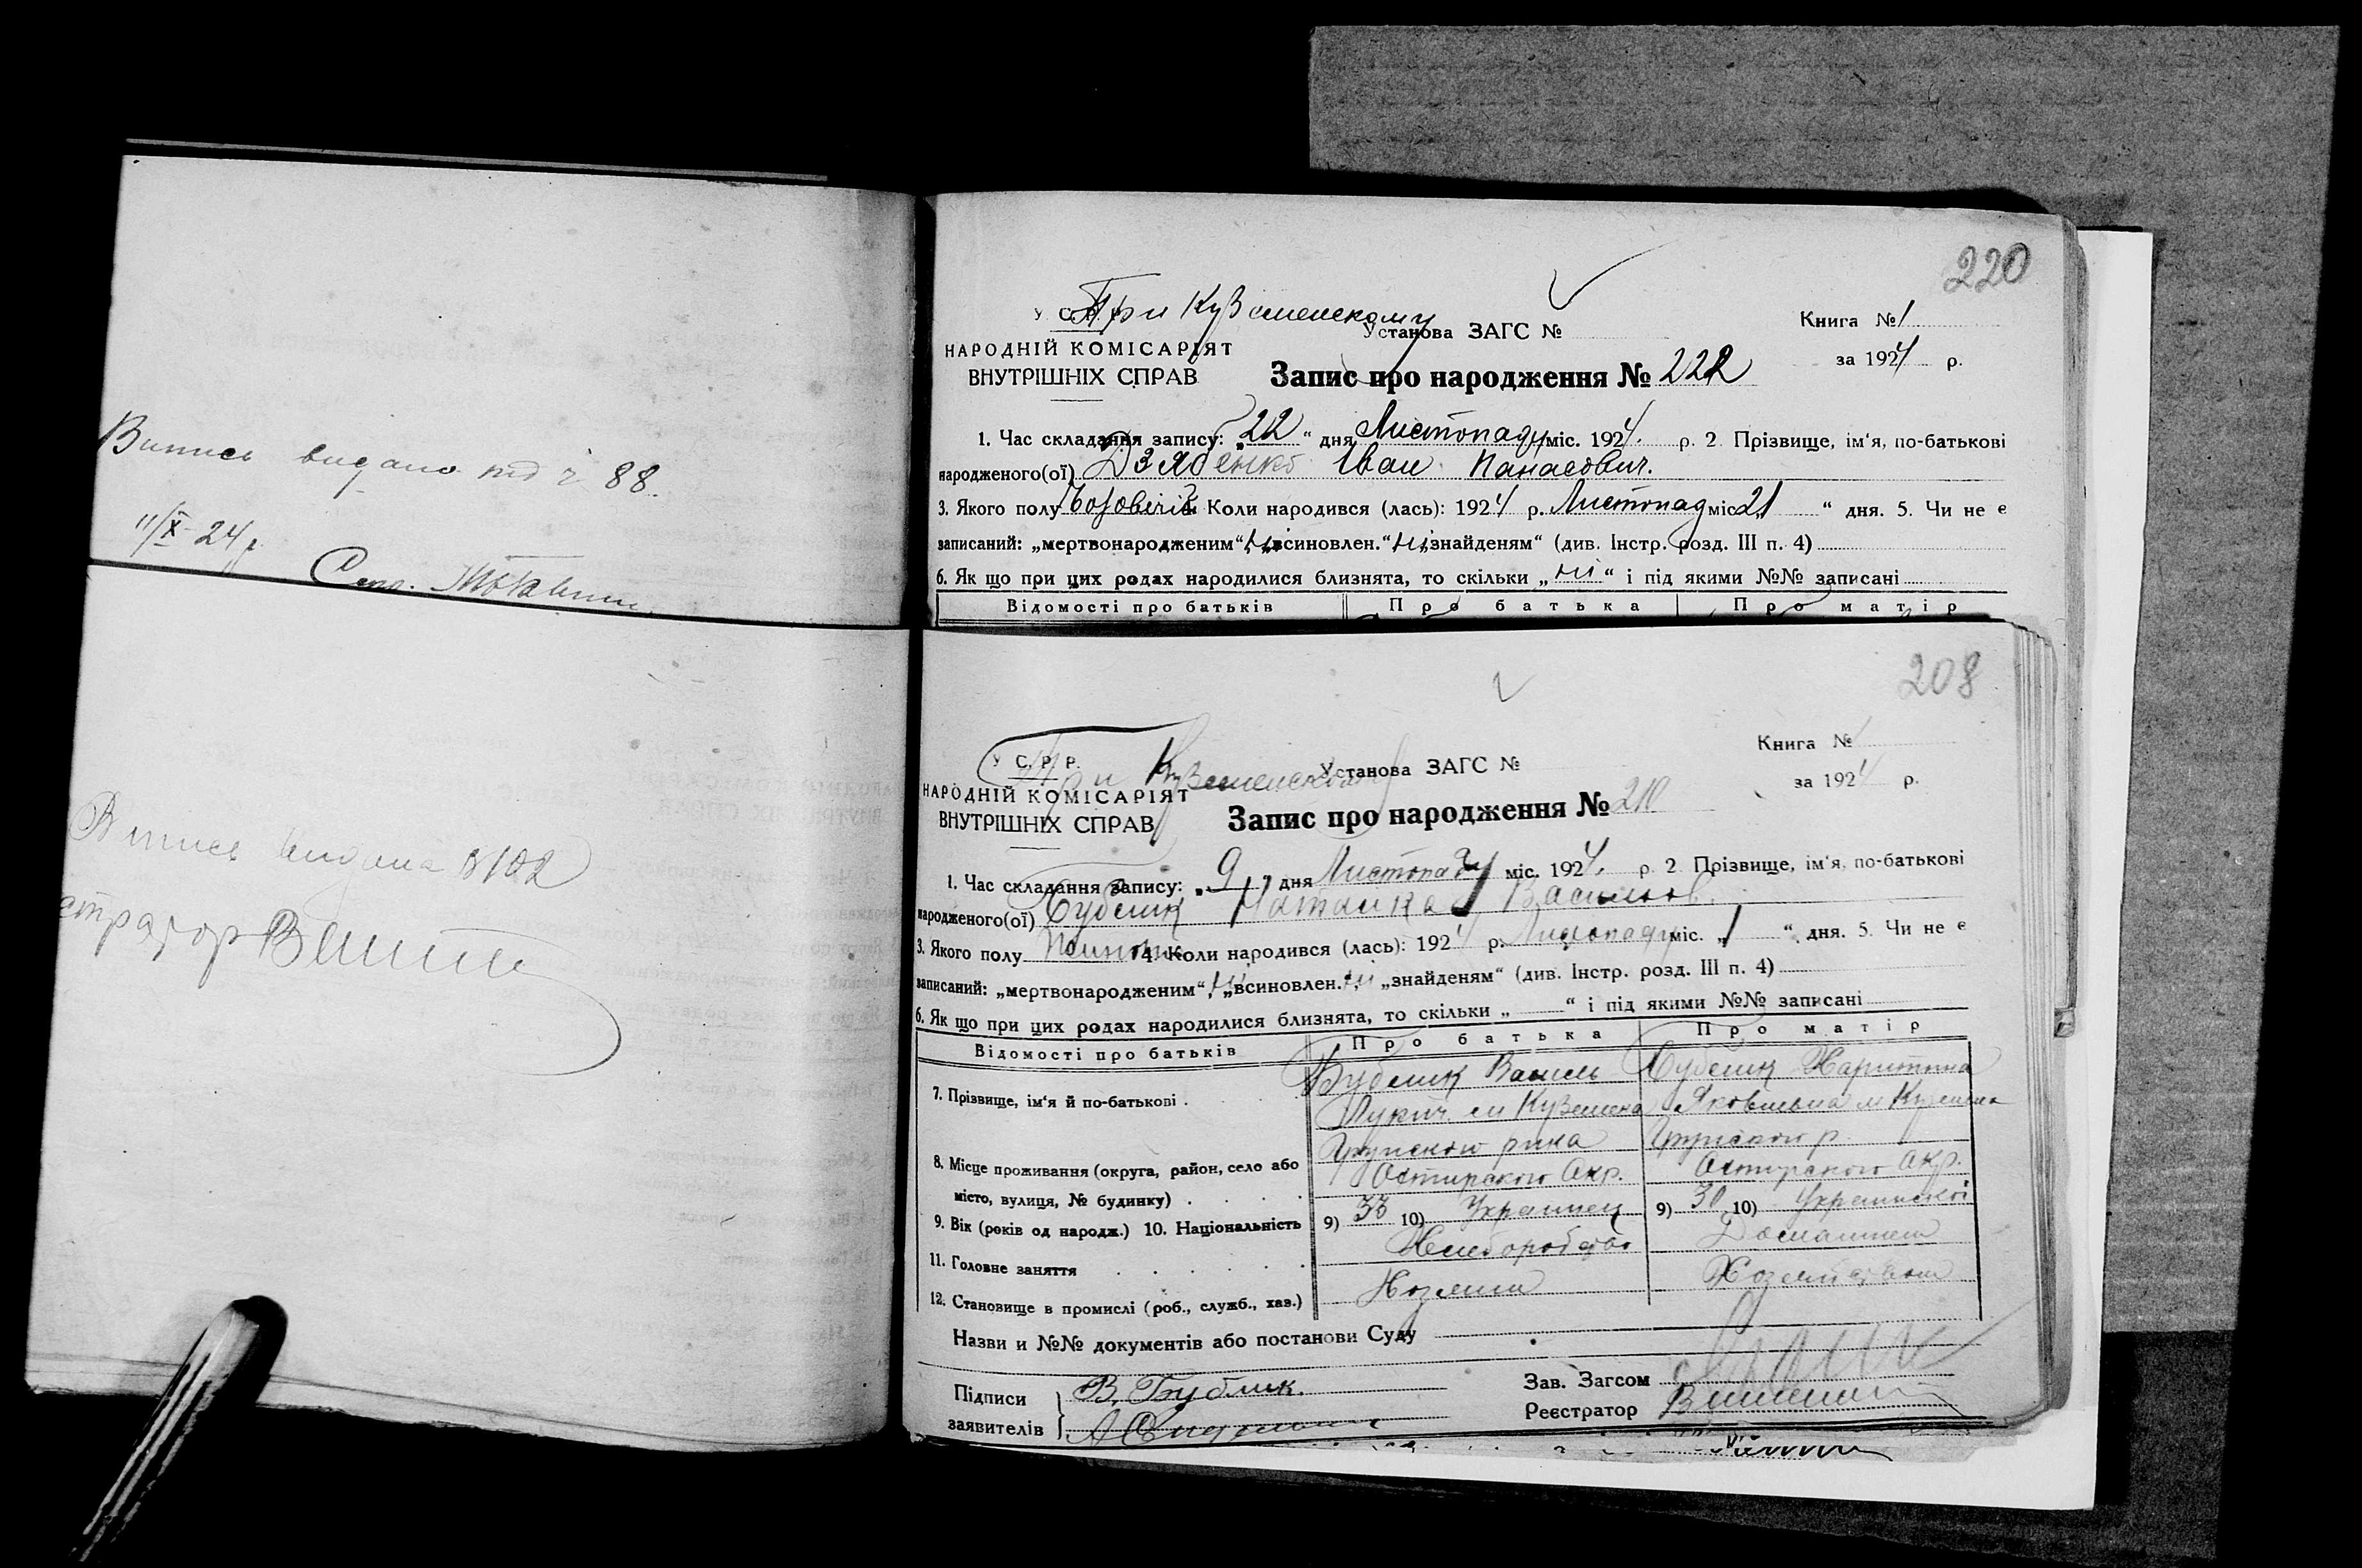 Выпись видано под ч 88.
11/X-24 р.
220
У. С. Р. Р.
При Куземенскому
Установа ЗАГС №
Книга № 1
НАРОДНІЙ КОМІСАРІЯТ
ВНУТРІШНІХ СПРАВ
за 1924 р.
Запис про народження № 222
1. Час складання запису: „22“ дня Листопаду міс. 1924. р. 2. Прізвище, ім‘я, по-батькові
народженого(ої) Дзябенко Іван Панасович.
3. Якого полу 4. Коли народився (лась): 1924 р. Листопад міс. 21 “ дня. 5. Чи не є
записаний: „мертвонародженим“, ні „всиновлен.“ ні „знайденям“ (див. Інстр. розд. III п. 4)
6. Як що при цих родах народилися близнята, то скільки „ні“ і під якими №№ записані
Відомості про батьків Про батька Про матір
208
У С. Р. Р.
При Куземенском
Установа ЗАГС №
Книга № 1
НАРОДНІЙ КОМІСАРІЯТ
ВНУТРІШНІХ СПРАВ
за 1924 р.
Запис про народження № 210
1. Час складання запису: „9“ дня Листопаду міс. 1924. р. 2. Прізвище, ім‘я, по-батькові
народженого(ої) Бублик Наталка Васильов.
3. Якого полу 4. Коли народився (лась): 1924 р. Листопаду міс. „1“ дня. 5. Чи не є
записаний: „мертвонародженим“, ні „всиновлен.“ ні „знайденям“ (див. Інстр. розд. III п. 4)
6. Як що при цих родах народилися близнята, то скільки „ “ і під якими №№ записані
Відомості про батьків Про батька Про матір
7. Прізвище, ім‘я й по-батькові . Бублик Василь Бублик Харитина
Лукич. Куземена Яковлевна
8. Місце проживання (округа, район, село або Грунского р-на Грунского р.
місто, вулиця, № будинку) . . . . Охтирского Окр. Охтирского Окр.
9. Вік (років од народж.) 10. Національність 9) 33 10) Украинец 9) 30 10)
11. Головне заняття Хлеборобство Домашнем
12. Становище в промислі (роб., служб., хаз.) Хозяин Хозяйством
Назви и №№ документів або постанови Суду
Підписи
заявителів
В. Бублик.
Зав. Загсом
Реєстратор